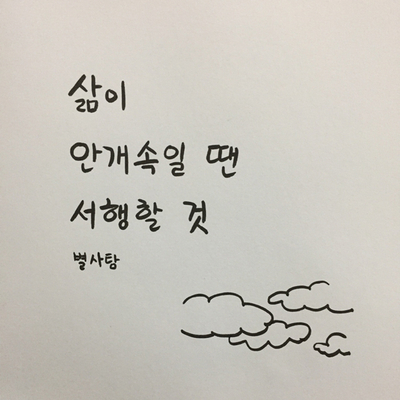 삶이
안개속일 땐
서행할 것
별사탕